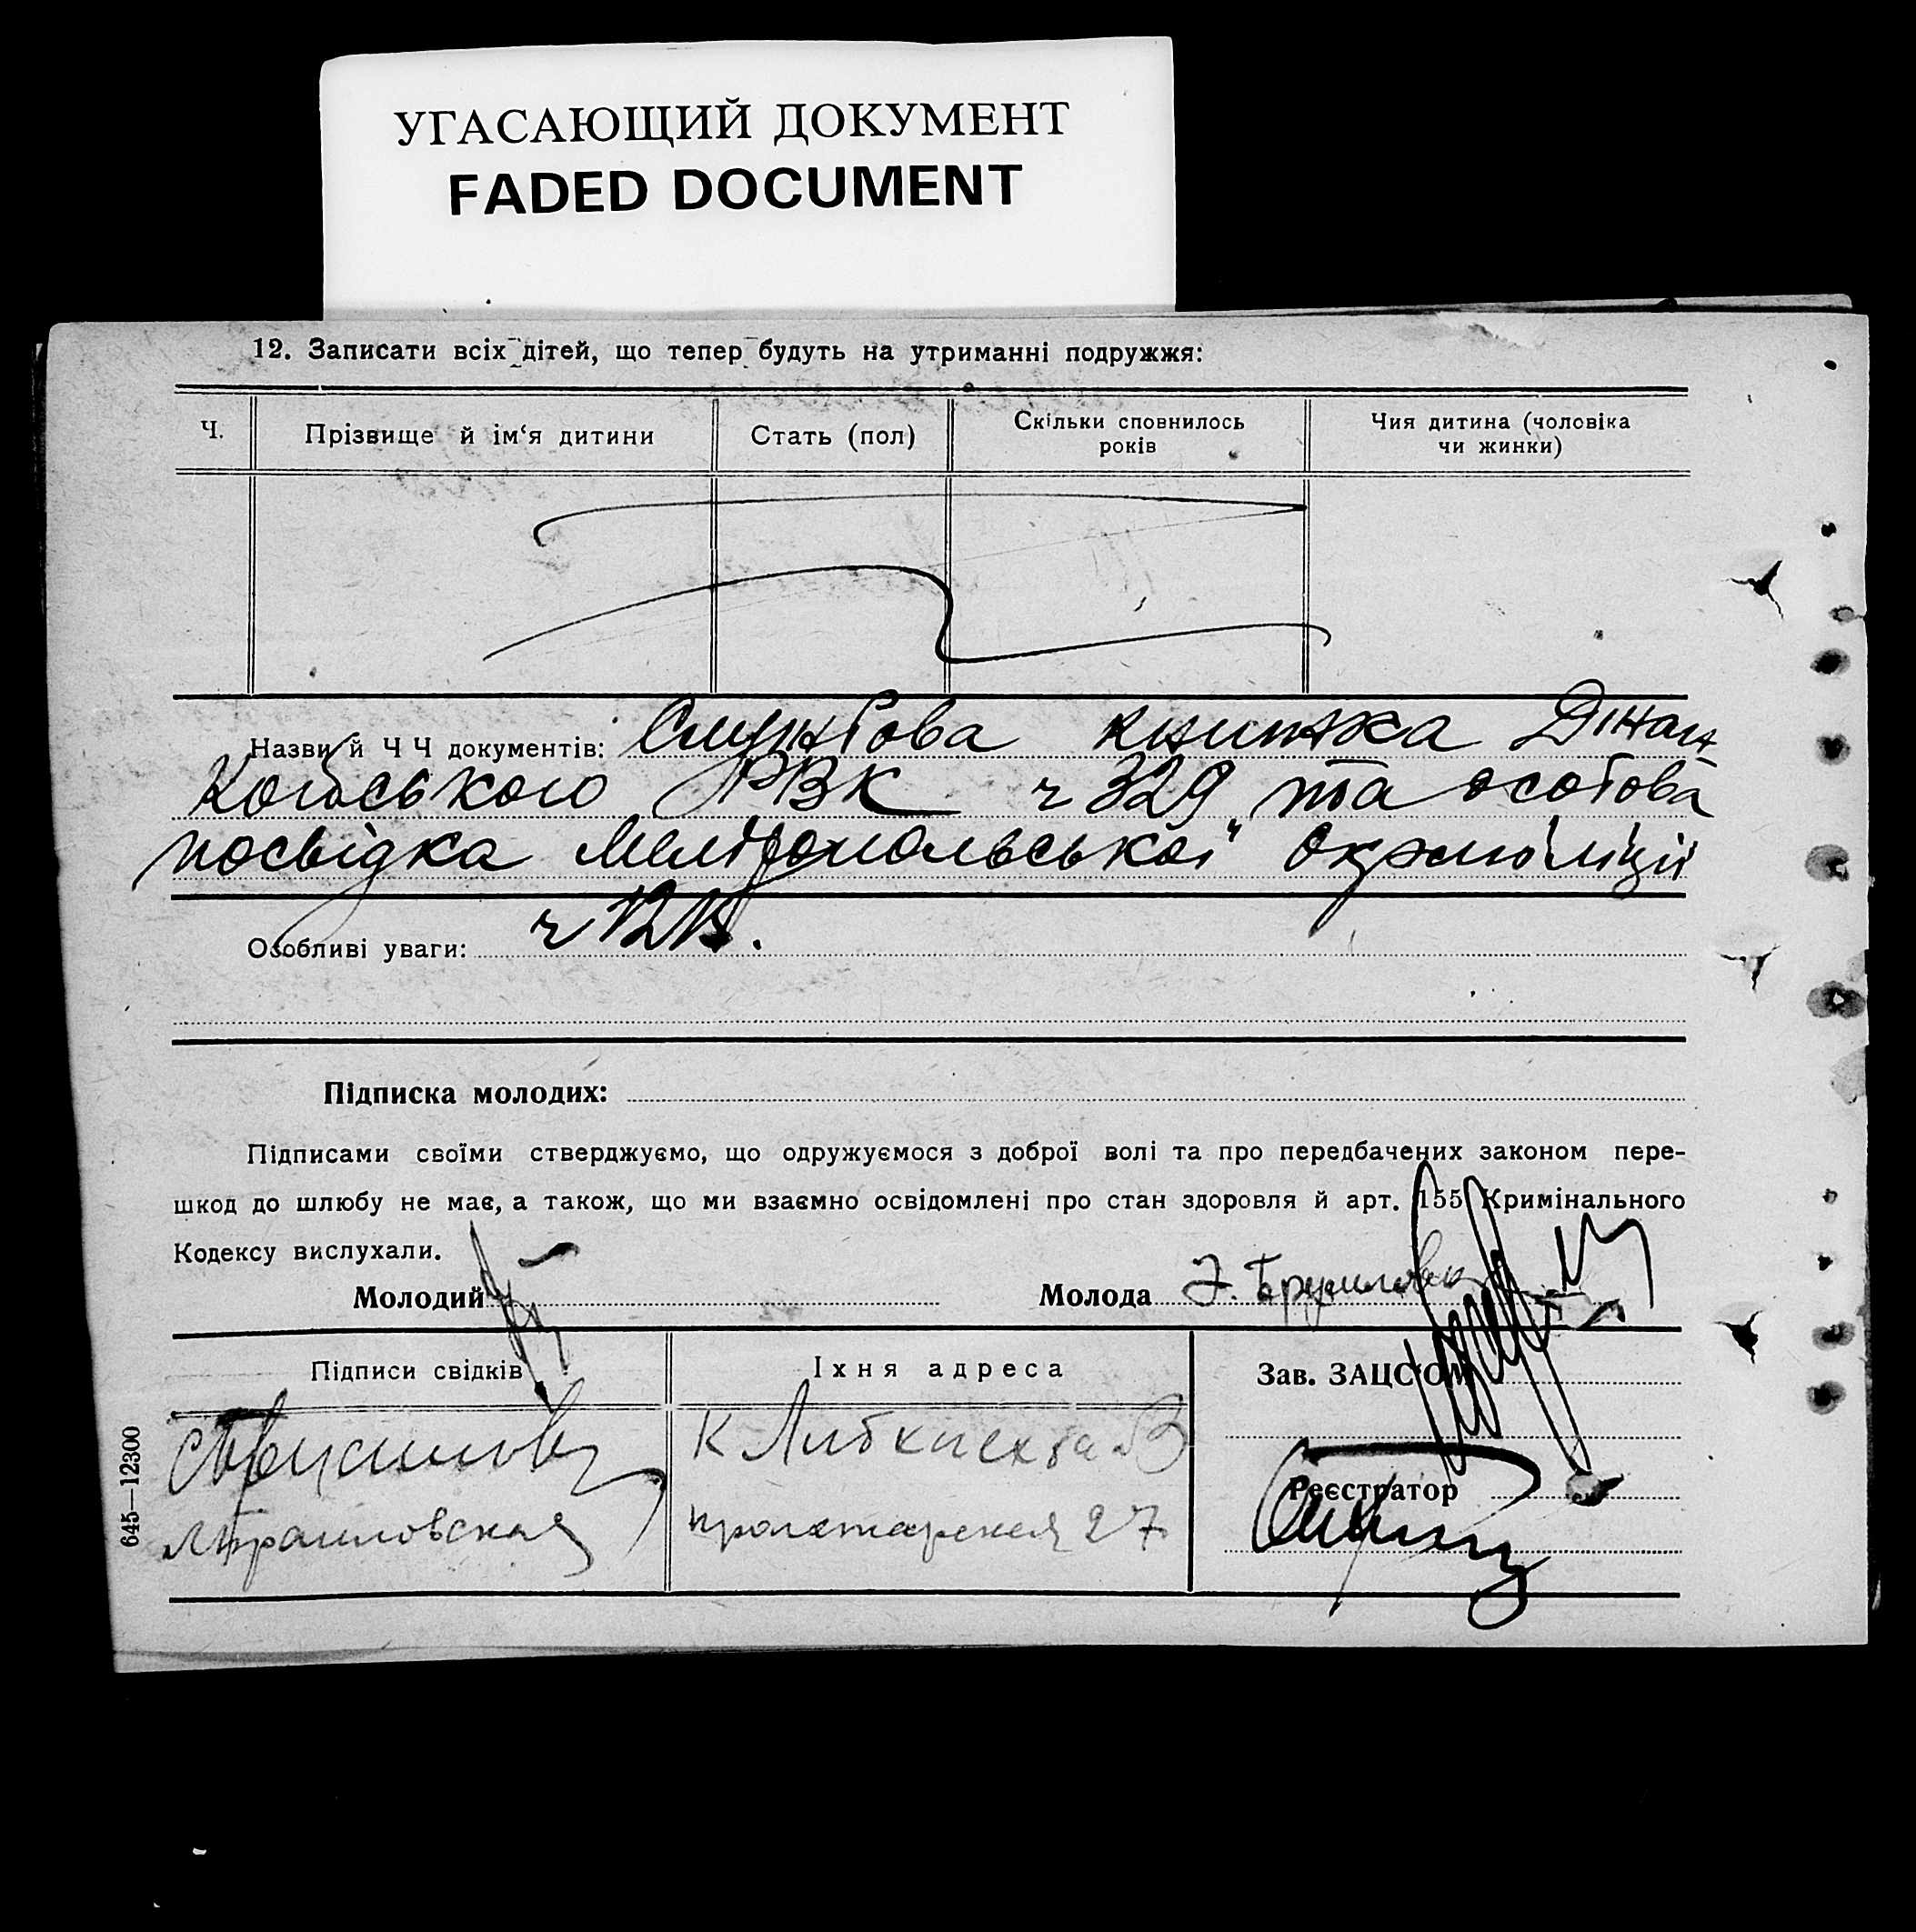 УГАСАЮЩИЙ ДОКУМЕНТ
FADED DOCUMENT
12. Записати всіх дітей, що тепер будуть на утриманні подружжя:
Ч.
Прізвище й ім‘я дитини
Стать (пол)
Скільки сповнилось
років
Чия дитина (чоловіка
чи жинки)
Назви й Ч Ч документів: Службова книжка
РВК ч 329 та особова
посвідка Мелітопольської Окрміліції
ч
Особливі уваги:
Підписка молодих:
Підписами своїми стверджуємо, що одружуємося з доброї волі та про передбачених законом пере-
шкод до шлюбу не має, а також, що ми взаємно освідомлені про стан здоровля й арт. 155 Кримінального
Кодексу вислухали.
Молодий
Молода
Підписи свідків
Їхня адреса
Зав. ЗАЦС‘ОМ
К Либкнехта
Реєстратор
пролетарская 27
645—12300